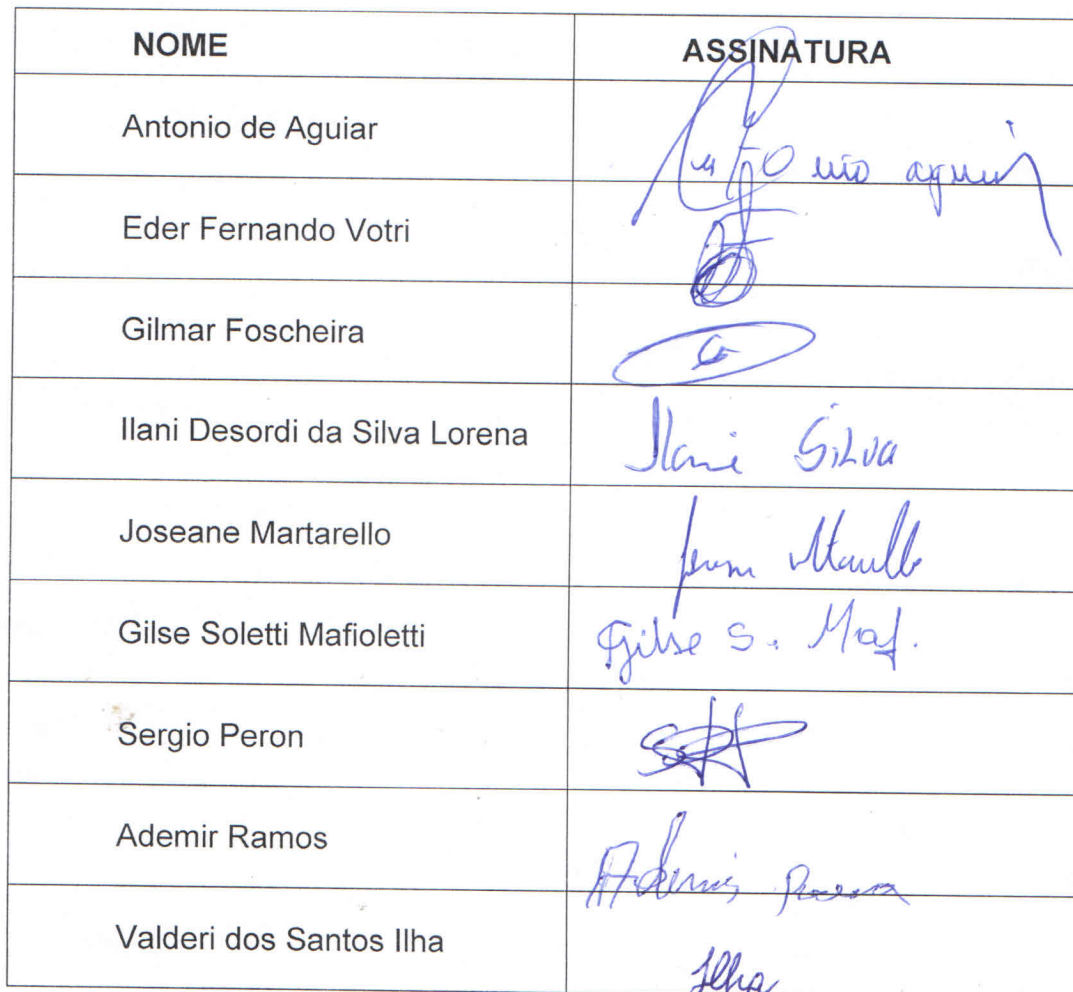 NOME ASSINATURA
Antonio de Aguiar
Eder Fernando Votri
Gilmar Foscheira G
Ilani Desordi da Silva Lorena Ilani Silva
Joseane Martarello
Gilse Soletti Mafioletti Gilse S. Maf.
Sergio Peron
Ademir Ramos Ademir
Valderi dos Santos Ilha Ilha